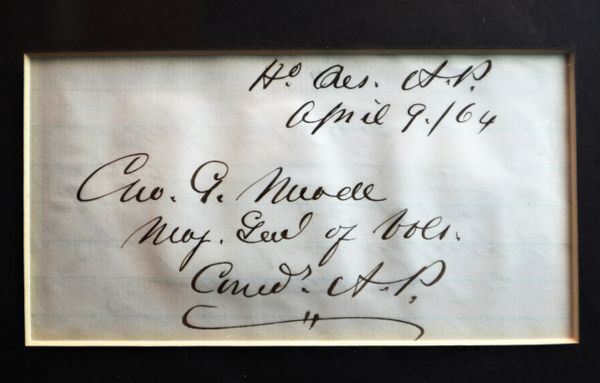 Hd. Qrs. A.P.
April 9. /64
Geo. G. Meade
Maj. Genl of Vols.
Comdg. A.P.